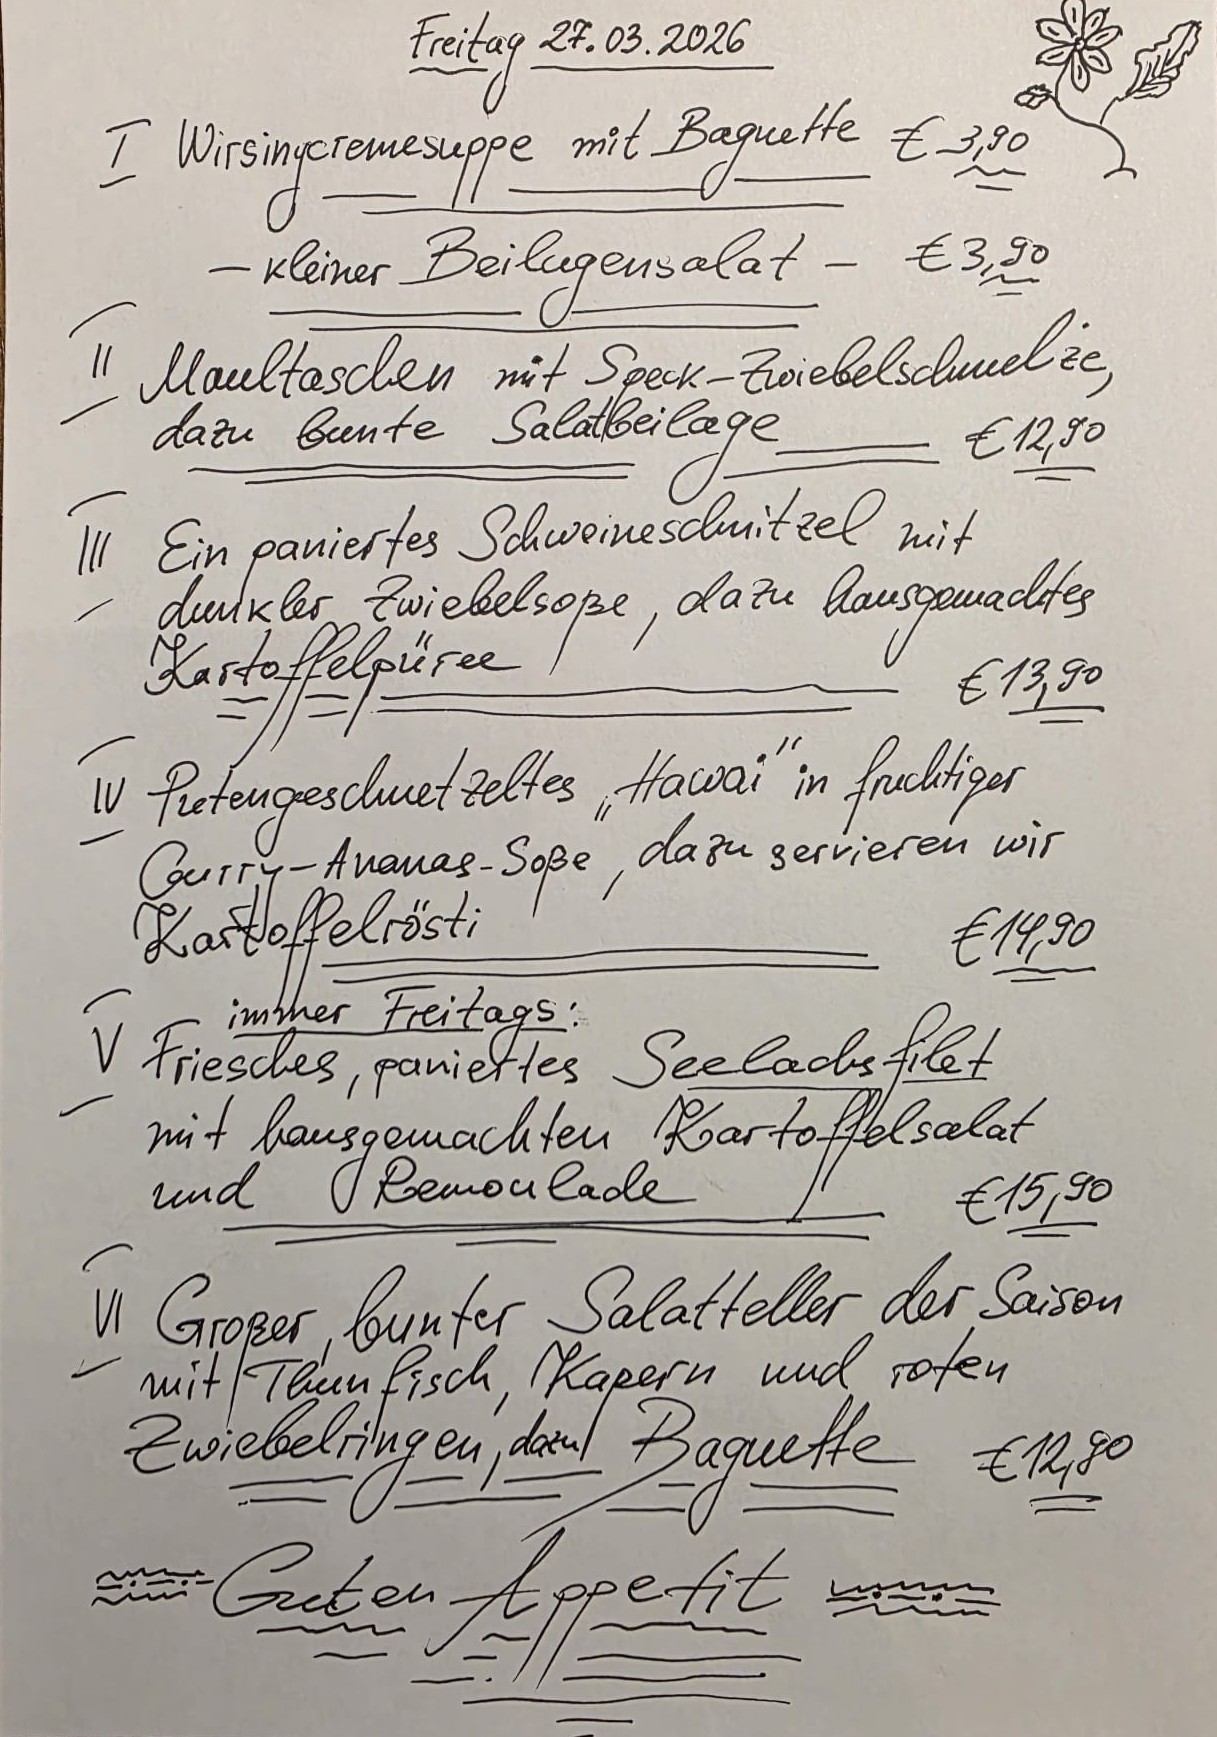 Freitag 27.03.2026
I Wirsingcremesuppe mit Baguette € 3,90
- kleiner Beilagensalat - € 3,90
II Maultaschen mit Speck-Zwiebelschmelze,
dazu bunte Salatbeilage € 12,90
III Ein paniertes Schweineschnitzel mit
dunkler Zwiebelsoße, dazu hausgemachtes
Kartoffelpüree € 13,90
IV Putengeschnetzeltes „Hawai" in fruchtiger
Curry-Ananas-Soße, dazu servieren wir
Kartoffelrösti € 14,90
immer Freitags:
V Friesches, paniertes Seelachsfilet
mit hausgemachten Kartoffelsalat
und Remoulade € 15,90
VI Großer, bunter Salatteller der Saison
mit Thunfisch, Kapern und roten
Zwiebelringen, dazu Baguette € 12,90
Guten Appetit